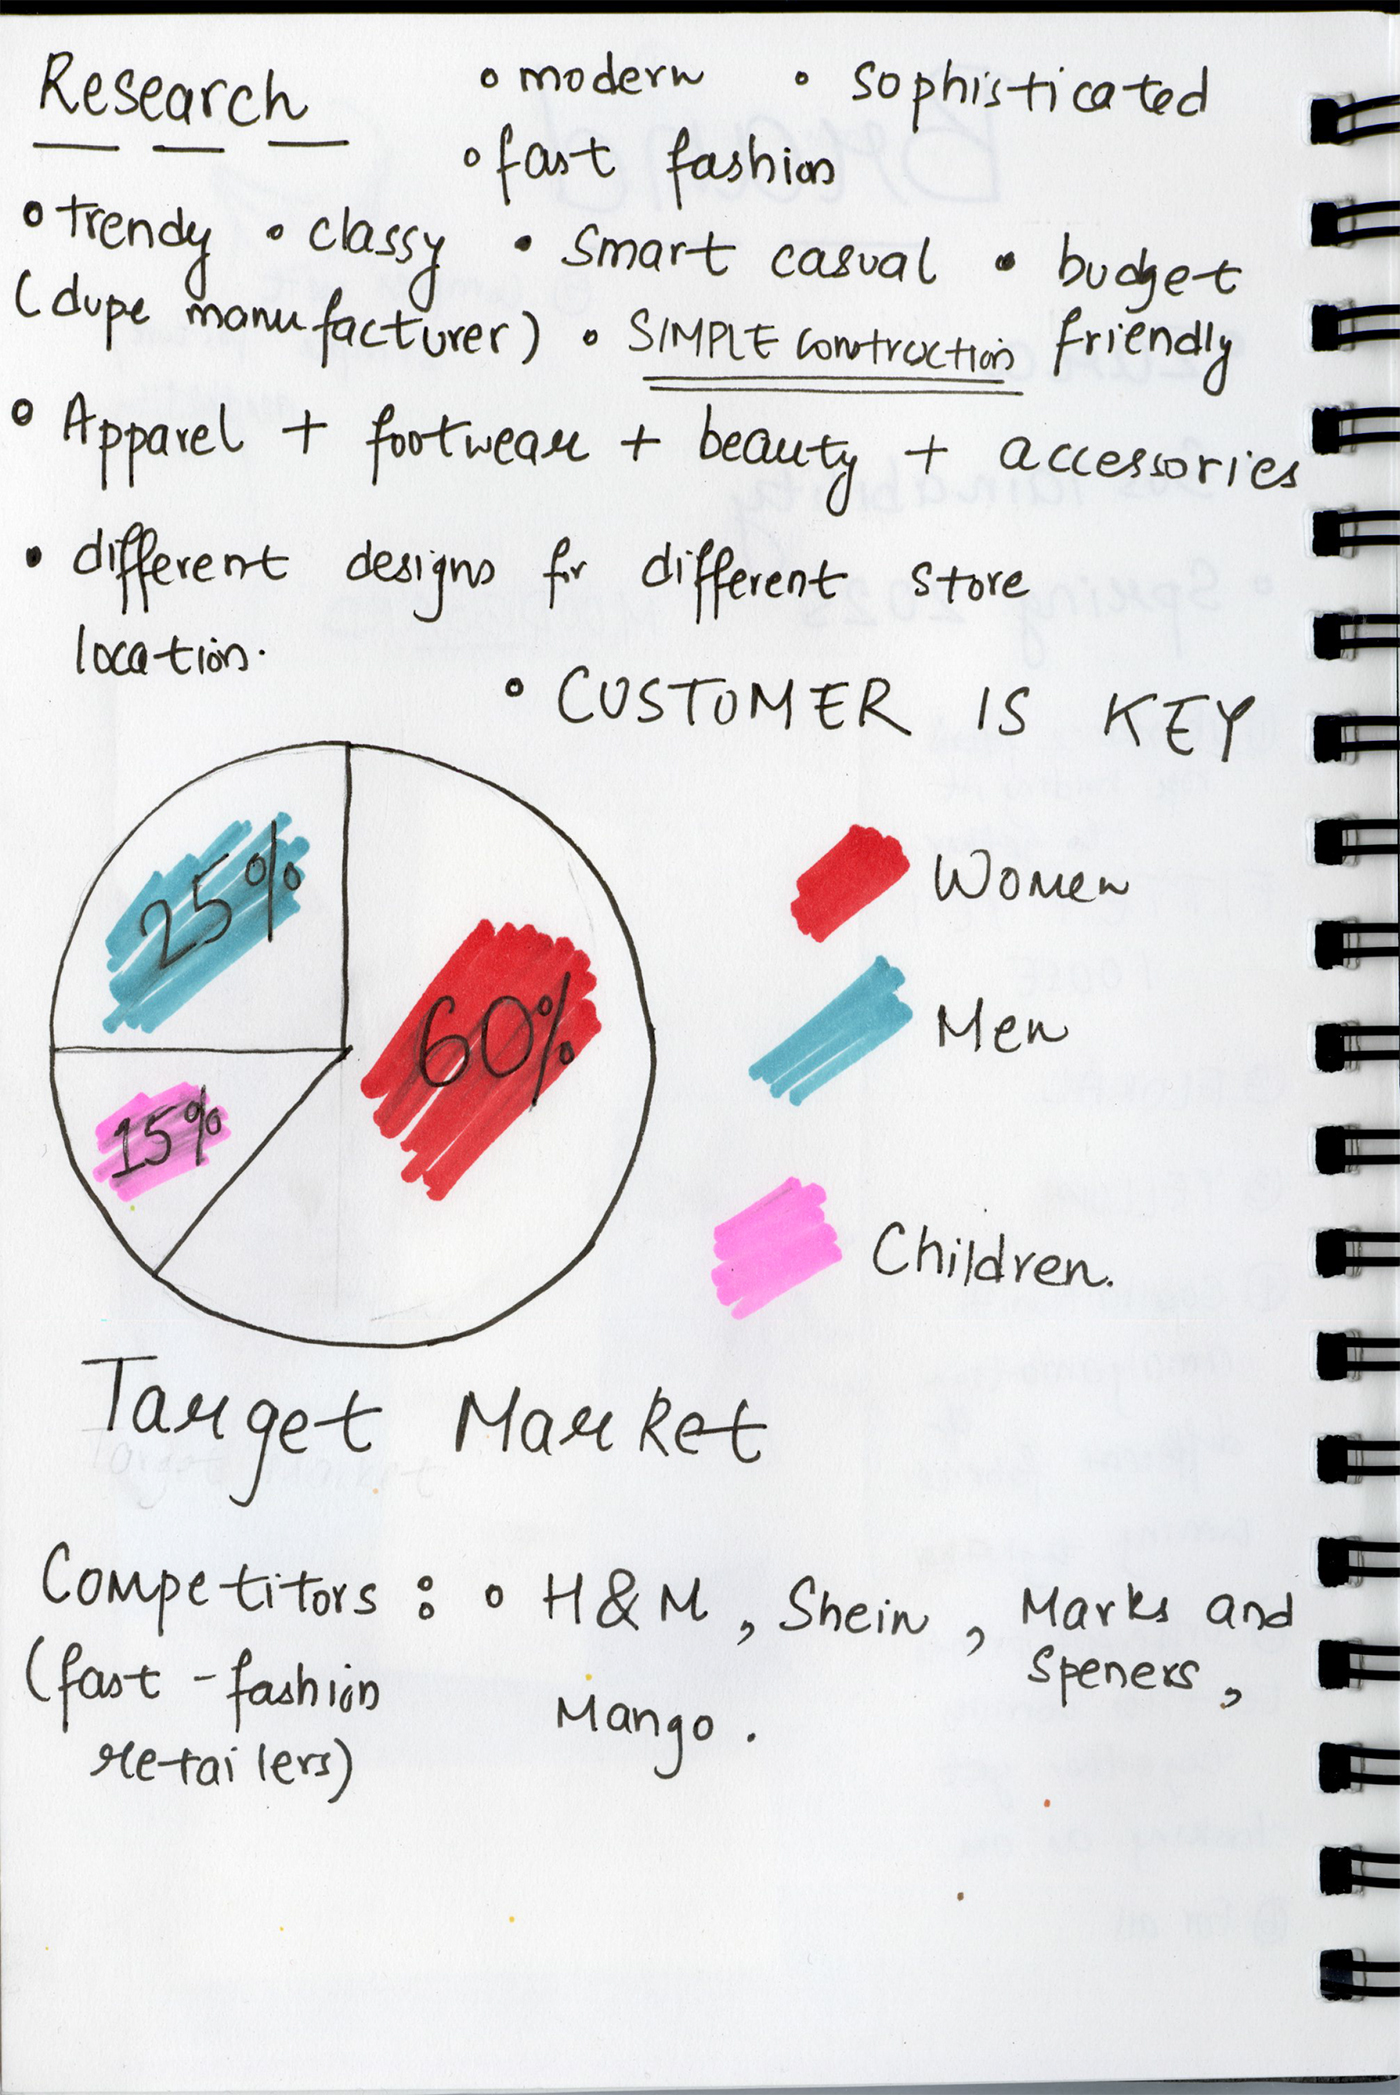 Research
• modern • sophisticated
• fast fashion
• trendy • classy • smart casual • budget friendly
(dupe manufacturer) • SIMPLE construction
• Apparel + footwear + beauty + accessories
• different designs for different store
location.
• CUSTOMER IS KEY
25%
60%
15%
Women
Men
Children.
Target Market
Competitors : • H&M, Shein, Marks and Speners,
(fast-fashion Mango.
retailers)